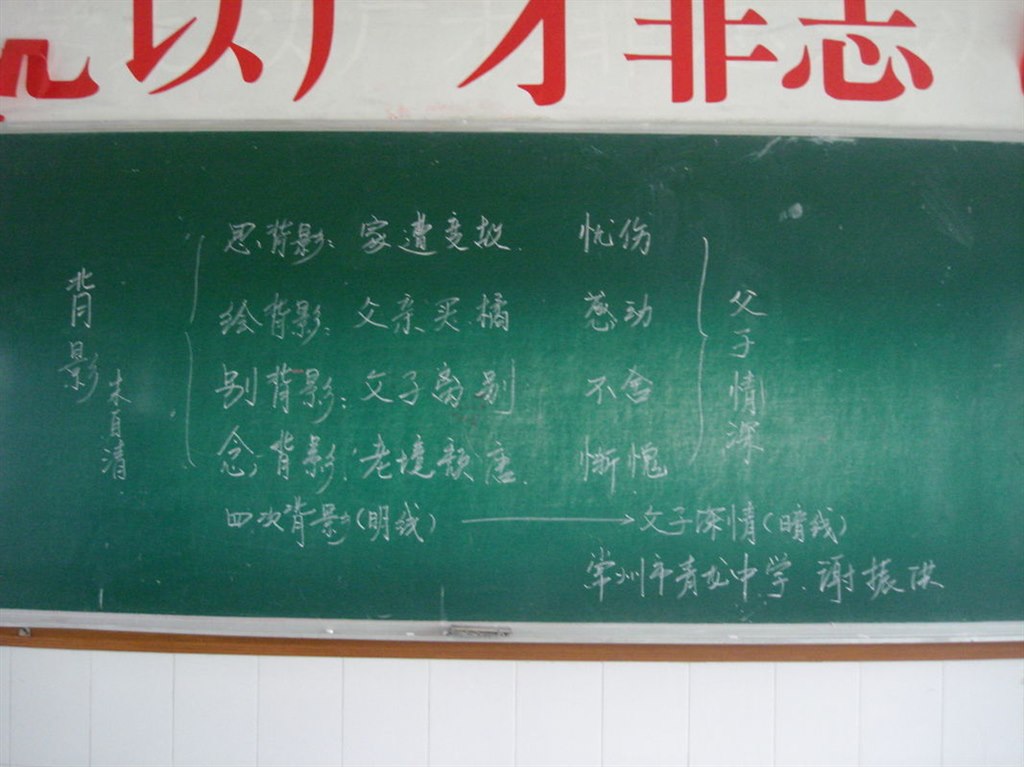 无以广才非志
背影
朱自清
思背影：家遭变故 忧伤
绘背影：父亲买橘 感动
别背影：父子离别 不舍
念背影：老境颓唐 惭愧
父子情深
四次背影（明线）→父子深情（暗线）
常州市青龙中学 谢振洪